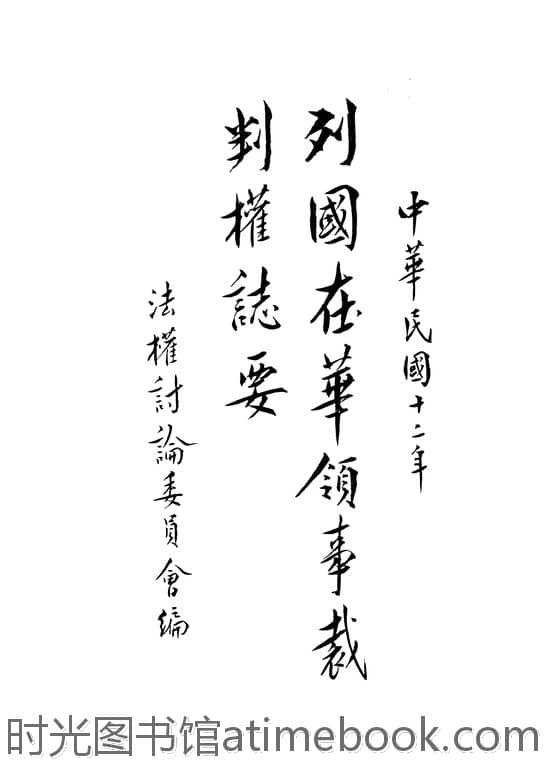 中華民國十二年
列國在華領事裁
判權誌要
法權討論委員會編
时光图书馆atimebook.com